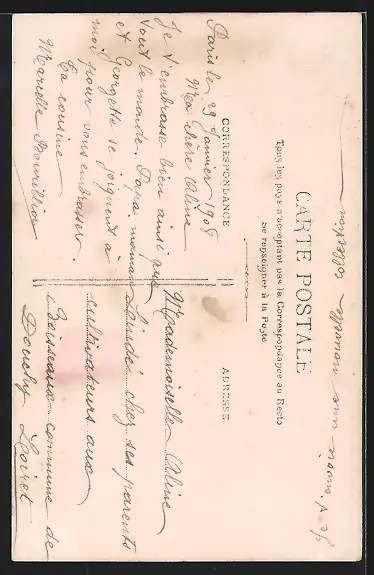 Je t'envoie une nouvelle collection
CARTE POSTALE
Tous les pays n'acceptent pas la Correspondance au Recto
Se renseigner à la Poste
CORRESPONDANCE
ADRESSE
Paris le 29 Janvier 1908
Ma Chère Aline
Je t'embrasse bien ainsi que
tout le monde. Papa, maman
et Georgette se joignent à
moi pour vous embrasser.
Ta cousine
Marcelle
Mademoiselle Aline
chez ses parents
cultivateurs aux
commune de
Douchy Loiret